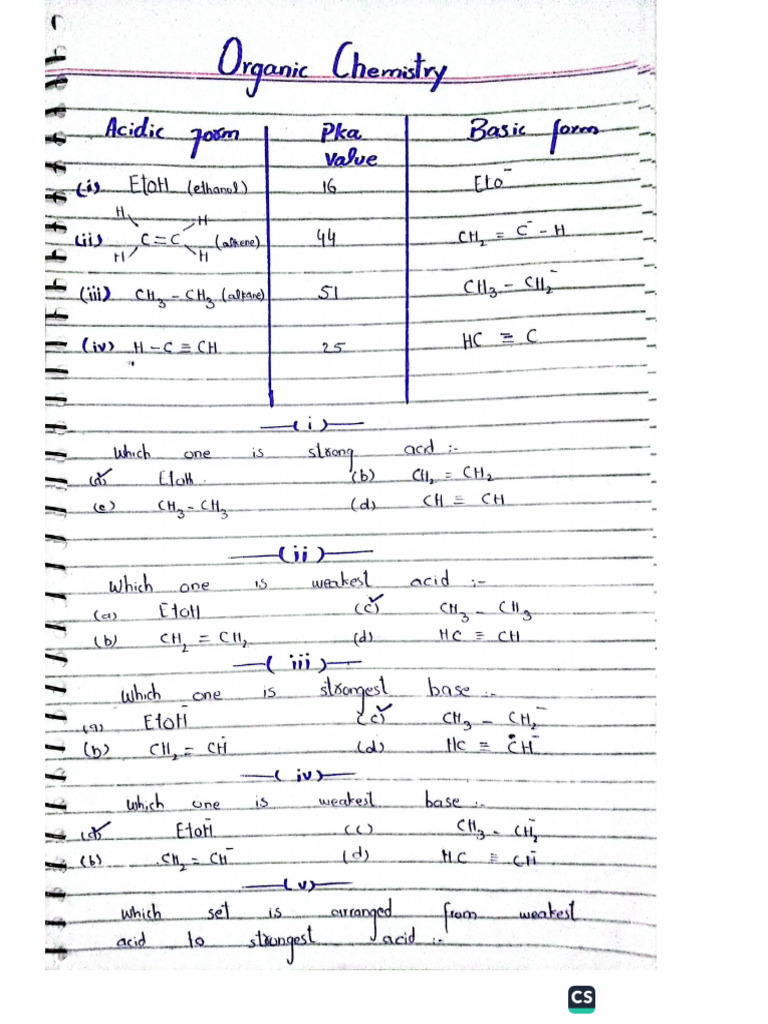 Organic Chemistry
Acidic form Pka value Basic form
(i) EtoH (ethanol) 16 Eto⁻
(ii) H H C=C H H (alkene) 44 CH₂ = C⁻ - H
(iii) CH₃ - CH₃ (alkane) 51 CH₃ - CH₂⁻
(iv) H - C ≡ CH 25 HC ≡ C
(i)
which one is strong acid :-
(a) EtoH (b) CH₂ = CH₂
(c) CH₃ - CH₃ (d) CH ≡ CH
(ii)
which one is weakest acid :-
(a) EtoH (c) CH₃ - CH₃
(b) CH₂ = CH₂ (d) HC ≡ CH
(iii)
which one is strongest base :-
(a) EtoH⁻ (c) CH₃ - CH₂⁻
(b) CH₂ = CH⁻ (d) HC ≡ CH⁻
(iv)
which one is weakest base :-
(a) EtoH⁻ (c) CH₃ - CH₂⁻
(b) CH₂ = CH⁻ (d) HC ≡ CH⁻
(v)
which set is arranged from weakest
acid to strongest acid :-
CS